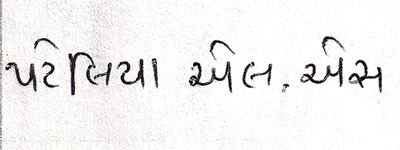 પટેલિયા એલ. એસ